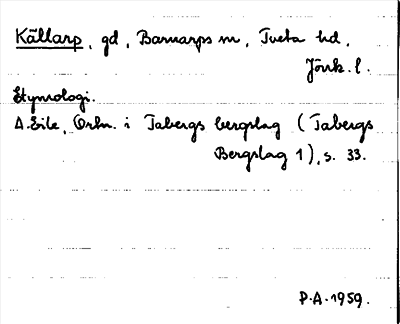 Kållarp, gd, Barnarps sn, Tveta hd,
Jönk. l.
Etymologi.
A. Eile, Ortn. i Tabergs bergslag (Tabergs
Bergslag 1), s. 33.
P.A. 1959.